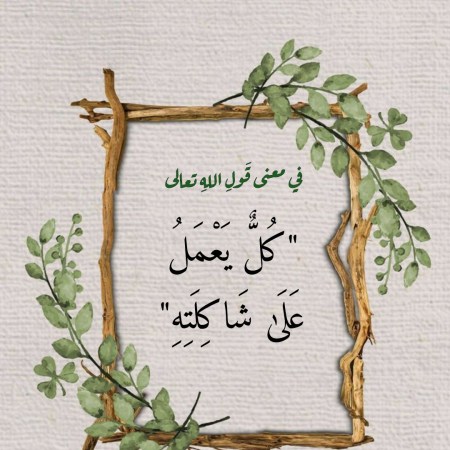 في معنى قَولِ اللهِ تعالى
"كُلٌّ يَعْمَلُ
عَلَىٰ شَاكِلَتِهِ"